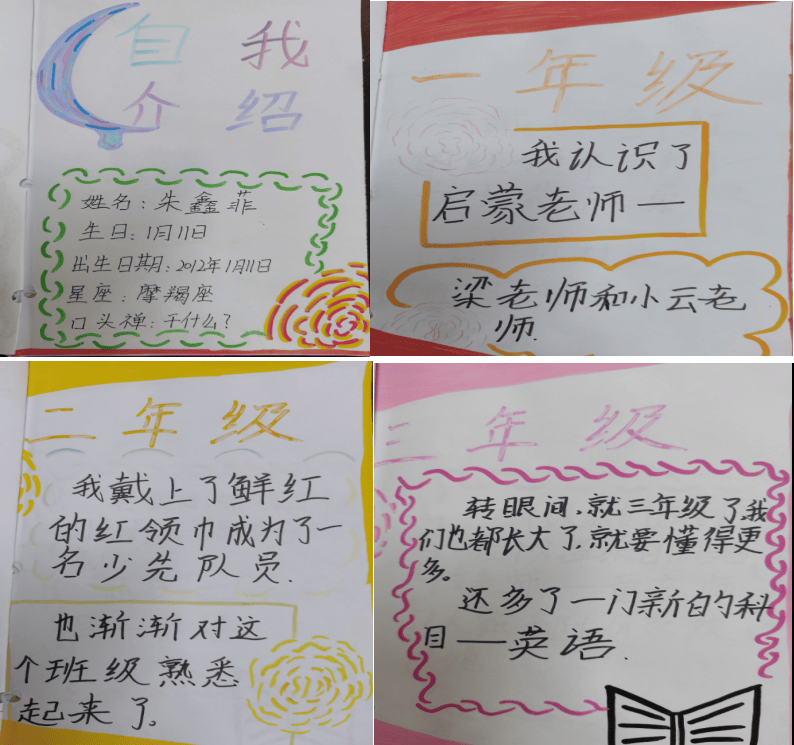 自 我
介 绍
姓名：朱鑫菲
生日：1月11日
出生日期：2012年1月11日
星座：摩羯座
口头禅：干什么？
一年级
我认识了
启蒙老师—
梁老师和小云老
师.
二年级
我戴上了鲜红
的红领巾成为了一
名少先队员.
也渐渐对这
个班级熟悉
起来了。
三年级
转眼间，就三年级了，我
们也都长大了，就要懂得更
多。
还多了一门新的科
目——英语.